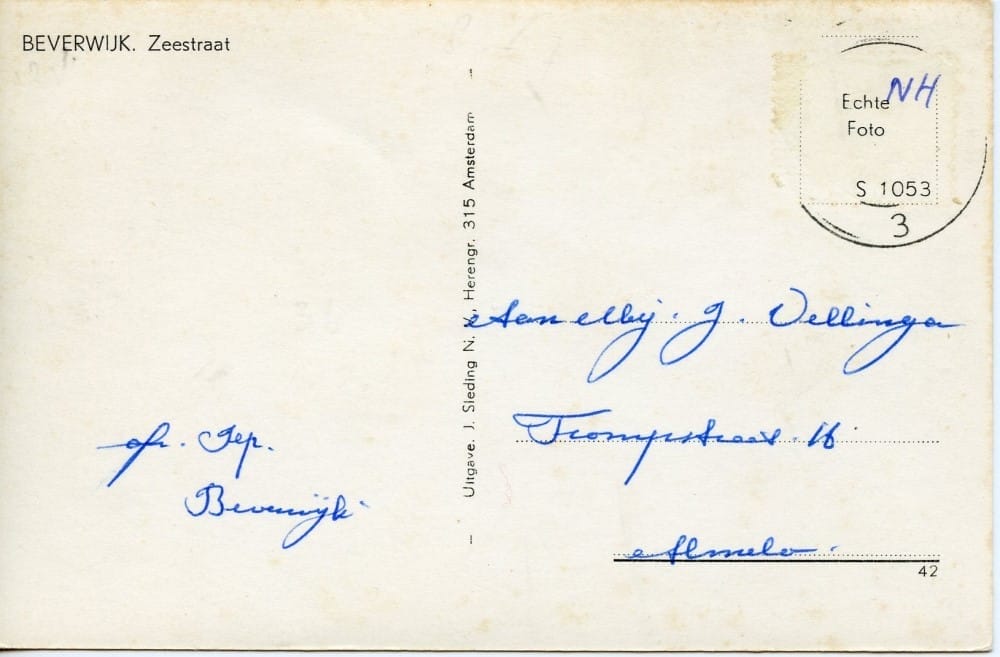 BEVERWIJK. Zeestraat
Echte
Foto
NH
S 1053
3
Uitgave. J. Sleding N. V., Herengr. 315 Amsterdam
Aan Mej. J. Vellinga
Trompstraat 16
Almelo.
afz. Jep.
Beverwijk
42